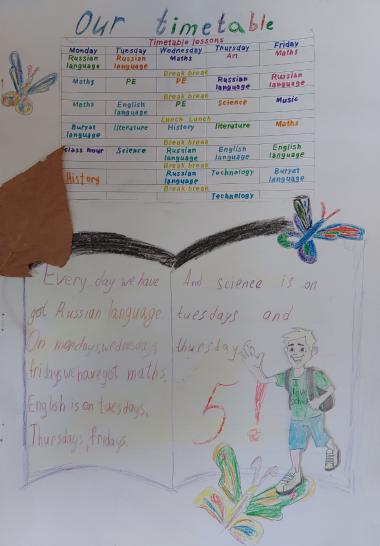 Our timetable
Timetable lessons
Monday Tuesday Wednesday Thursday Friday
Russian language Russian language Maths Art Maths
Break break
Maths PE PE Russian language Russian language
Break break
Maths English language PE Science Music
Lunch Lunch
Buryat language literature History literature Maths
Break break
class hour Science Russian language English language English language
Break break
History Russian language Technology Buryat language
Break break
Technology
Every day we have
got Russian language
On mondays, wednesdays,
fridays we have got maths,
English is on tuesdays,
Thursdays, fridays.
And science is on
tuesdays and
thursdays
5!
I
love
school